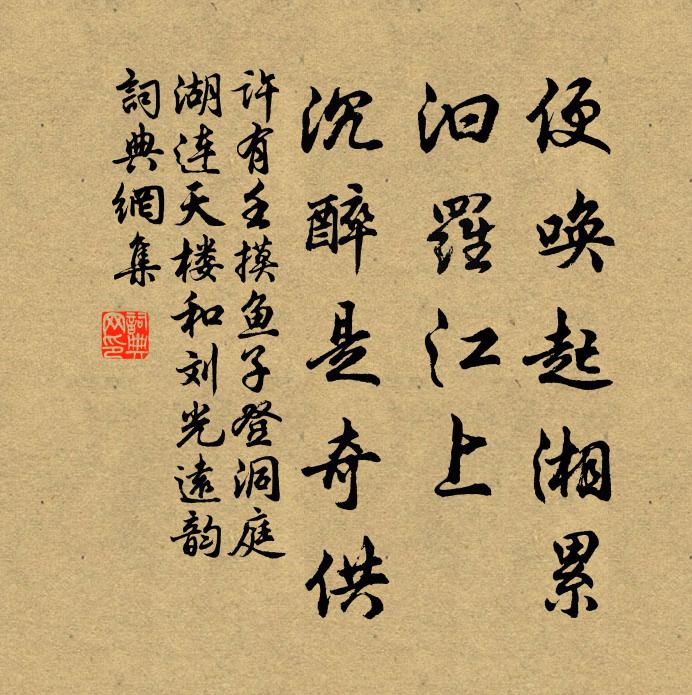 便唤起湘累
汨羅江上
沉醉是奇供
许有壬摸鱼子登洞庭
湖连天楼和刘光遠韵
詞典網集
詞典网印